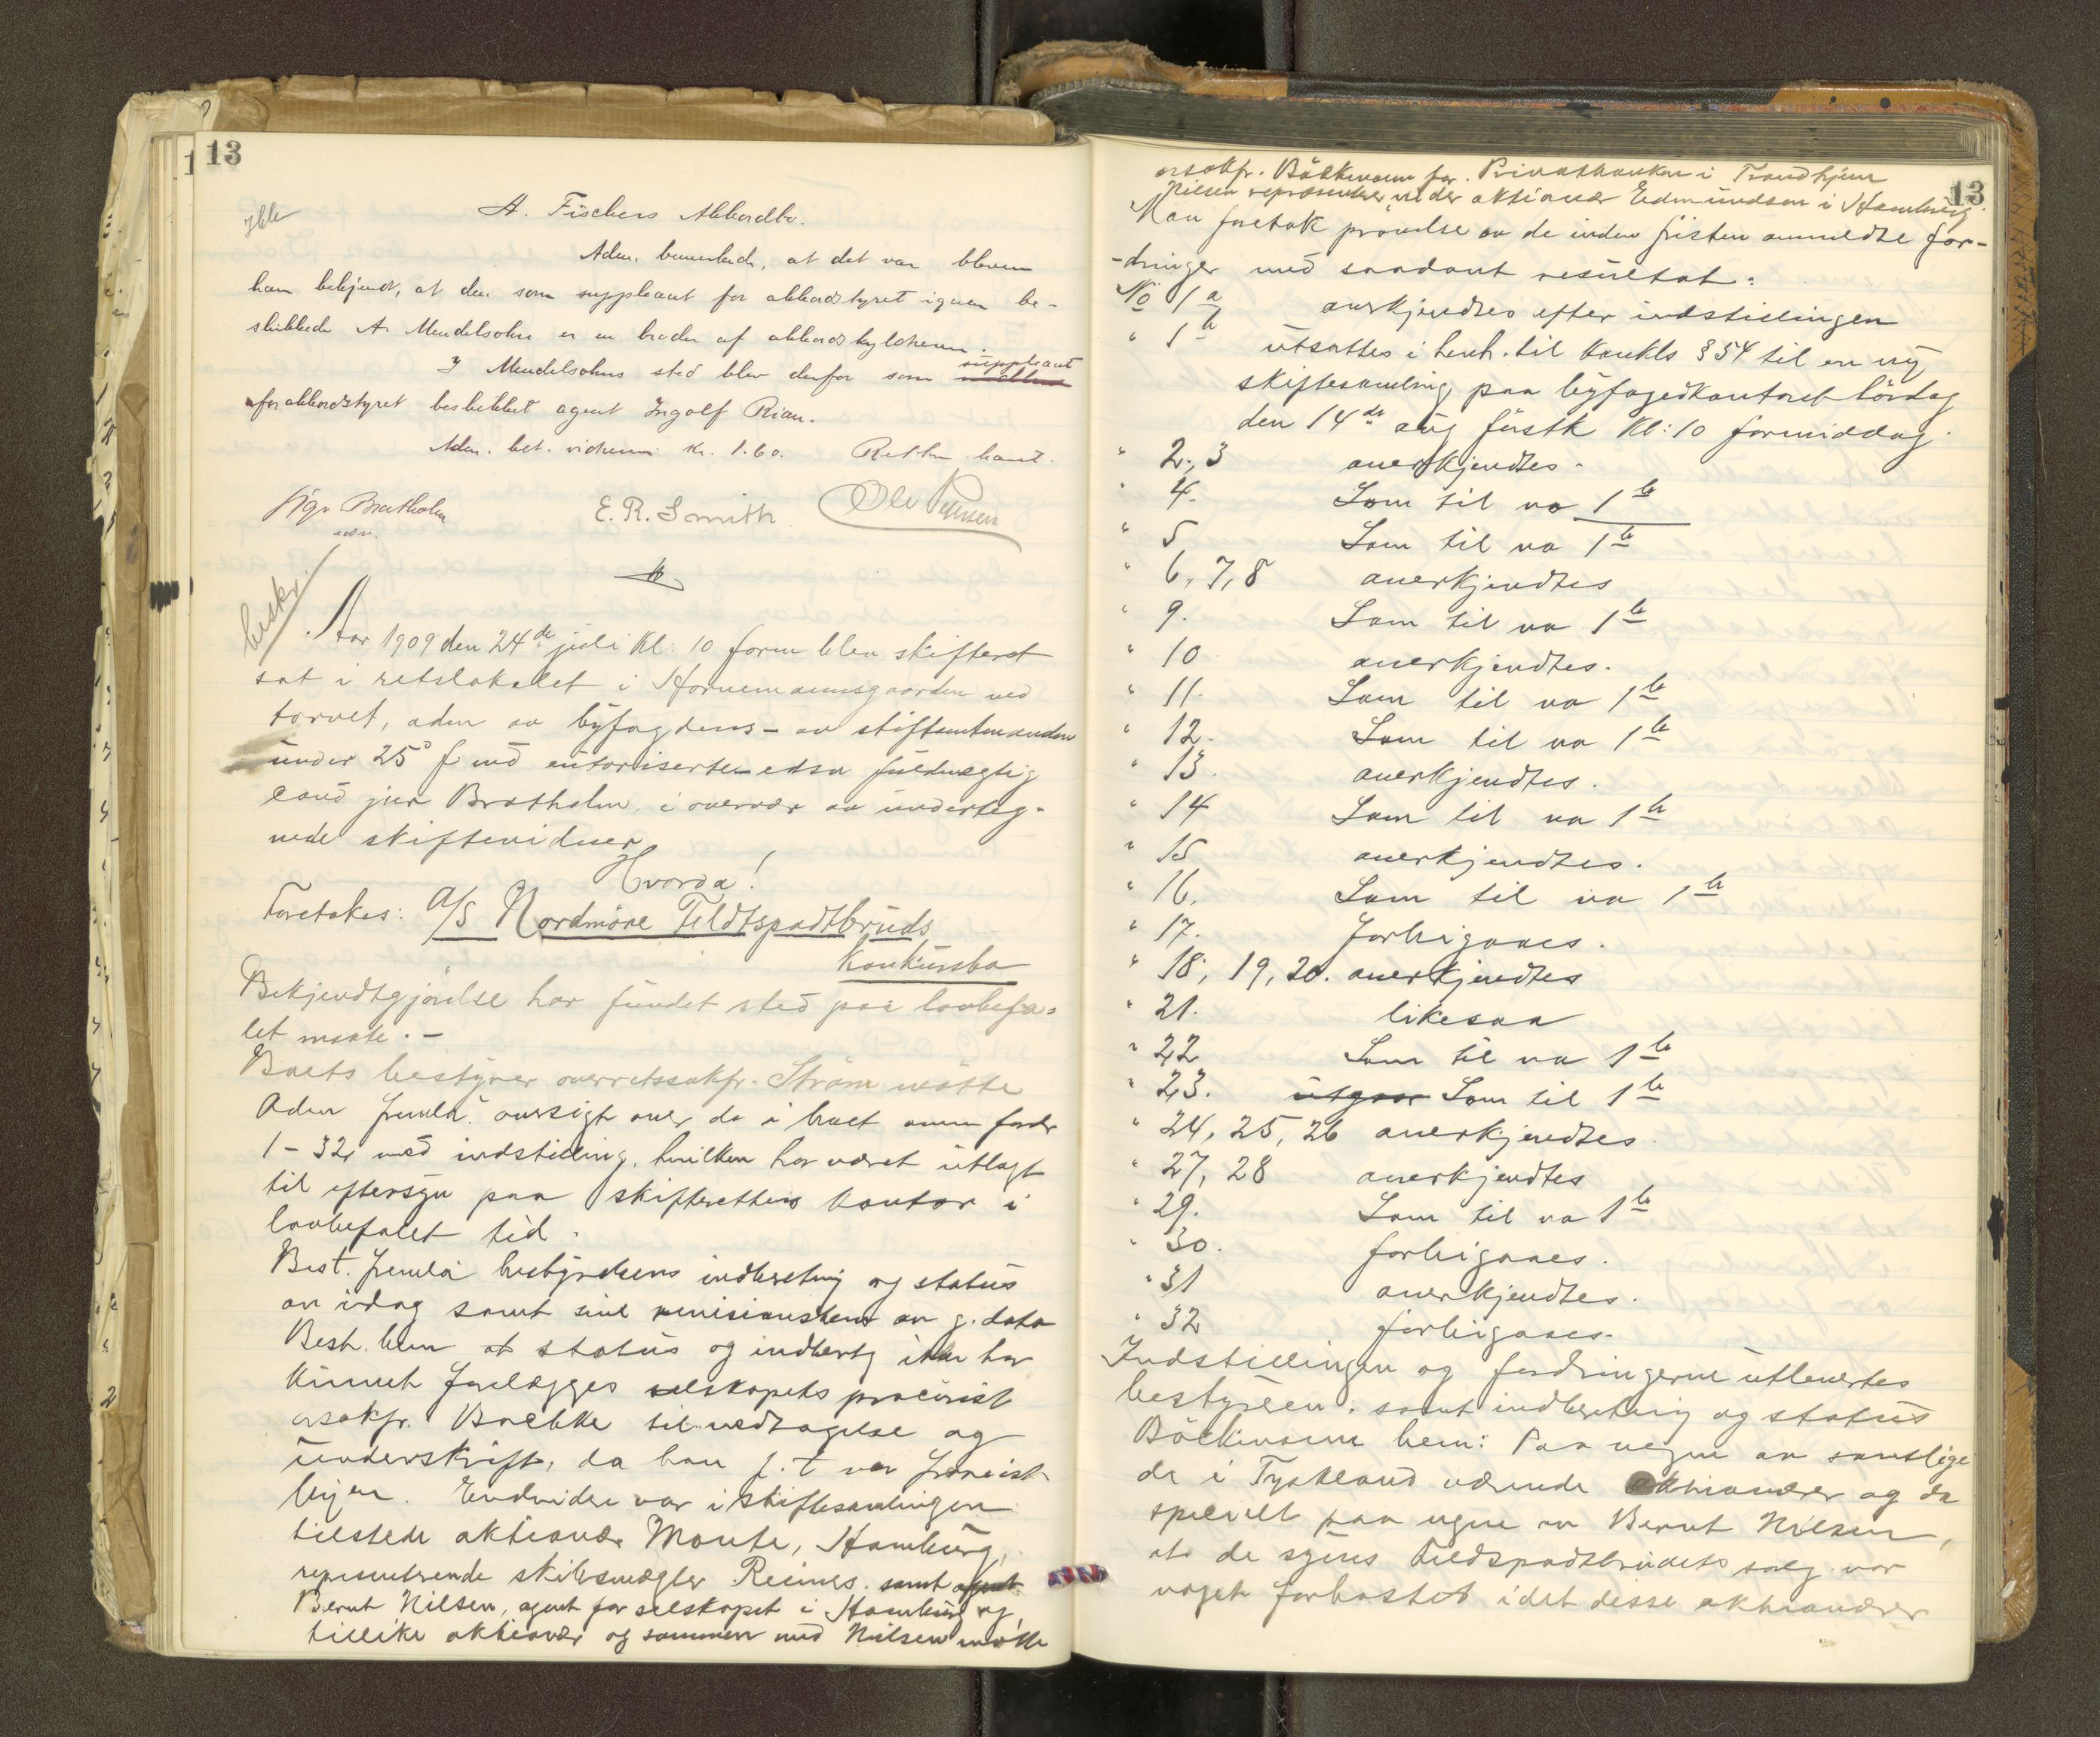 13
A. Fischers Akkordbo.
Adm. bemerkede, at det var bleven
ham bekjendt, at den som suppleant for akkordstyret igaar be-
skikkede A. Mendelsohn er en broder af akkordskyldneren.
I Mendelsohns sted blev derfor som suppleant
for akkordstyret beskikket agent Ingolf Rian.
Adm. bet. vidnerne kr. 1.60. Retten hævet.
Sigv Bratholm
edsv.
E. R. Smith
Ole Petersen
beskr.
Aar 1909 den 24de juli kl: 10 form blev skifteret
sat i retslokalet i Hornemannsgaarden ved
torvet, adm av byfogdens - av stiftamtmanden
under 25 f md autoriserte - edsv fuldmægtig
cand jur Bratholm i overvær av underteg-
nede skiftevidner
Hvorda!
Foretokes: A/S Nordmöre Feldtspadtbruds
konkursbo
Bekjendtgjörelse har fundet sted paa lovbefa-
let maate. -
Boets bestyrer overretssakfr. Ström mötte
Adm freml. oversigt over de i boet anm fordr
1 - 32, med indstilling, hvilken har været utlagt
til eftersyn paa skifterettens kontor i
lovbefalet tid.
Best. freml. bestyrelsens indberetning og status
av idag samt sine revisionsbem av g. dato
Best. bem at status og indbertg ikke har
kunnet forelægges selskapets procurist
orsakfr. Baekke til vedtagelse og
underskrift, da han f. t var frareist
byen. Endvidere var i skiftesamlingen
tilstede aktionær Monte, Hamburg,
representerende skibsmægler Reimers. samt agent
Bernt Nilsen, agent for selskapet i Hamburg og
tillike aktionær og sammen med Nilsen mötte
13
orsakfr. Böckmann for Privatbanken i Trondhjem
Nilsen representerer videre aktionær Edmundson i Hamburg.
Man foretok prövelse av de inden fristen anmeldte for-
-dringer med saadant resultat:
No 1 a anerkjendtes efter indstillingen
" 1 b utsattes i henh. til konkls § 54 til en ny
skiftesamling paa byfogedkontoret lördag
den 14de aug förstk kl: 10 formiddag.
" 2, 3 anerkjendtes.
" 4. Som til no 1 b
" 5 Som til no 1 b
" 6, 7, 8 anerkjendtes
" 9. Som til no 1 b
" 10 anerkjendtes.
" 11. Som til no 1 b
" 12. Som til no 1 b
" 13. anerkjendtes.
" 14 Som til no 1 b
" 15 anerkjendtes.
" 16. Som til no 1 b
" 17. forbigaaes.
" 18, 19, 20. anerkjendtes
" 21. likesaa
" 22 Som til no 1 b
" 23. utgaar Som til 1 b
" 24, 25, 26 anerkjendtes
" 27, 28 anerkjendtes
" 29. Som til no 1 b
" 30. forbigaaes.
" 31 anerkjendtes.
" 32 forbigaaes.
Indstillingen og fordringerne utlevertes
bestyreren, samt indberetning og status
Böckmann bem: Paa vegne av samtlige
de i Tyskland værende aktionærer og da
specielt paa vegne av Bernt Nilsen,
at de synes Feldspadtbrudets salg var
noget forhastet idet disse aktionærer